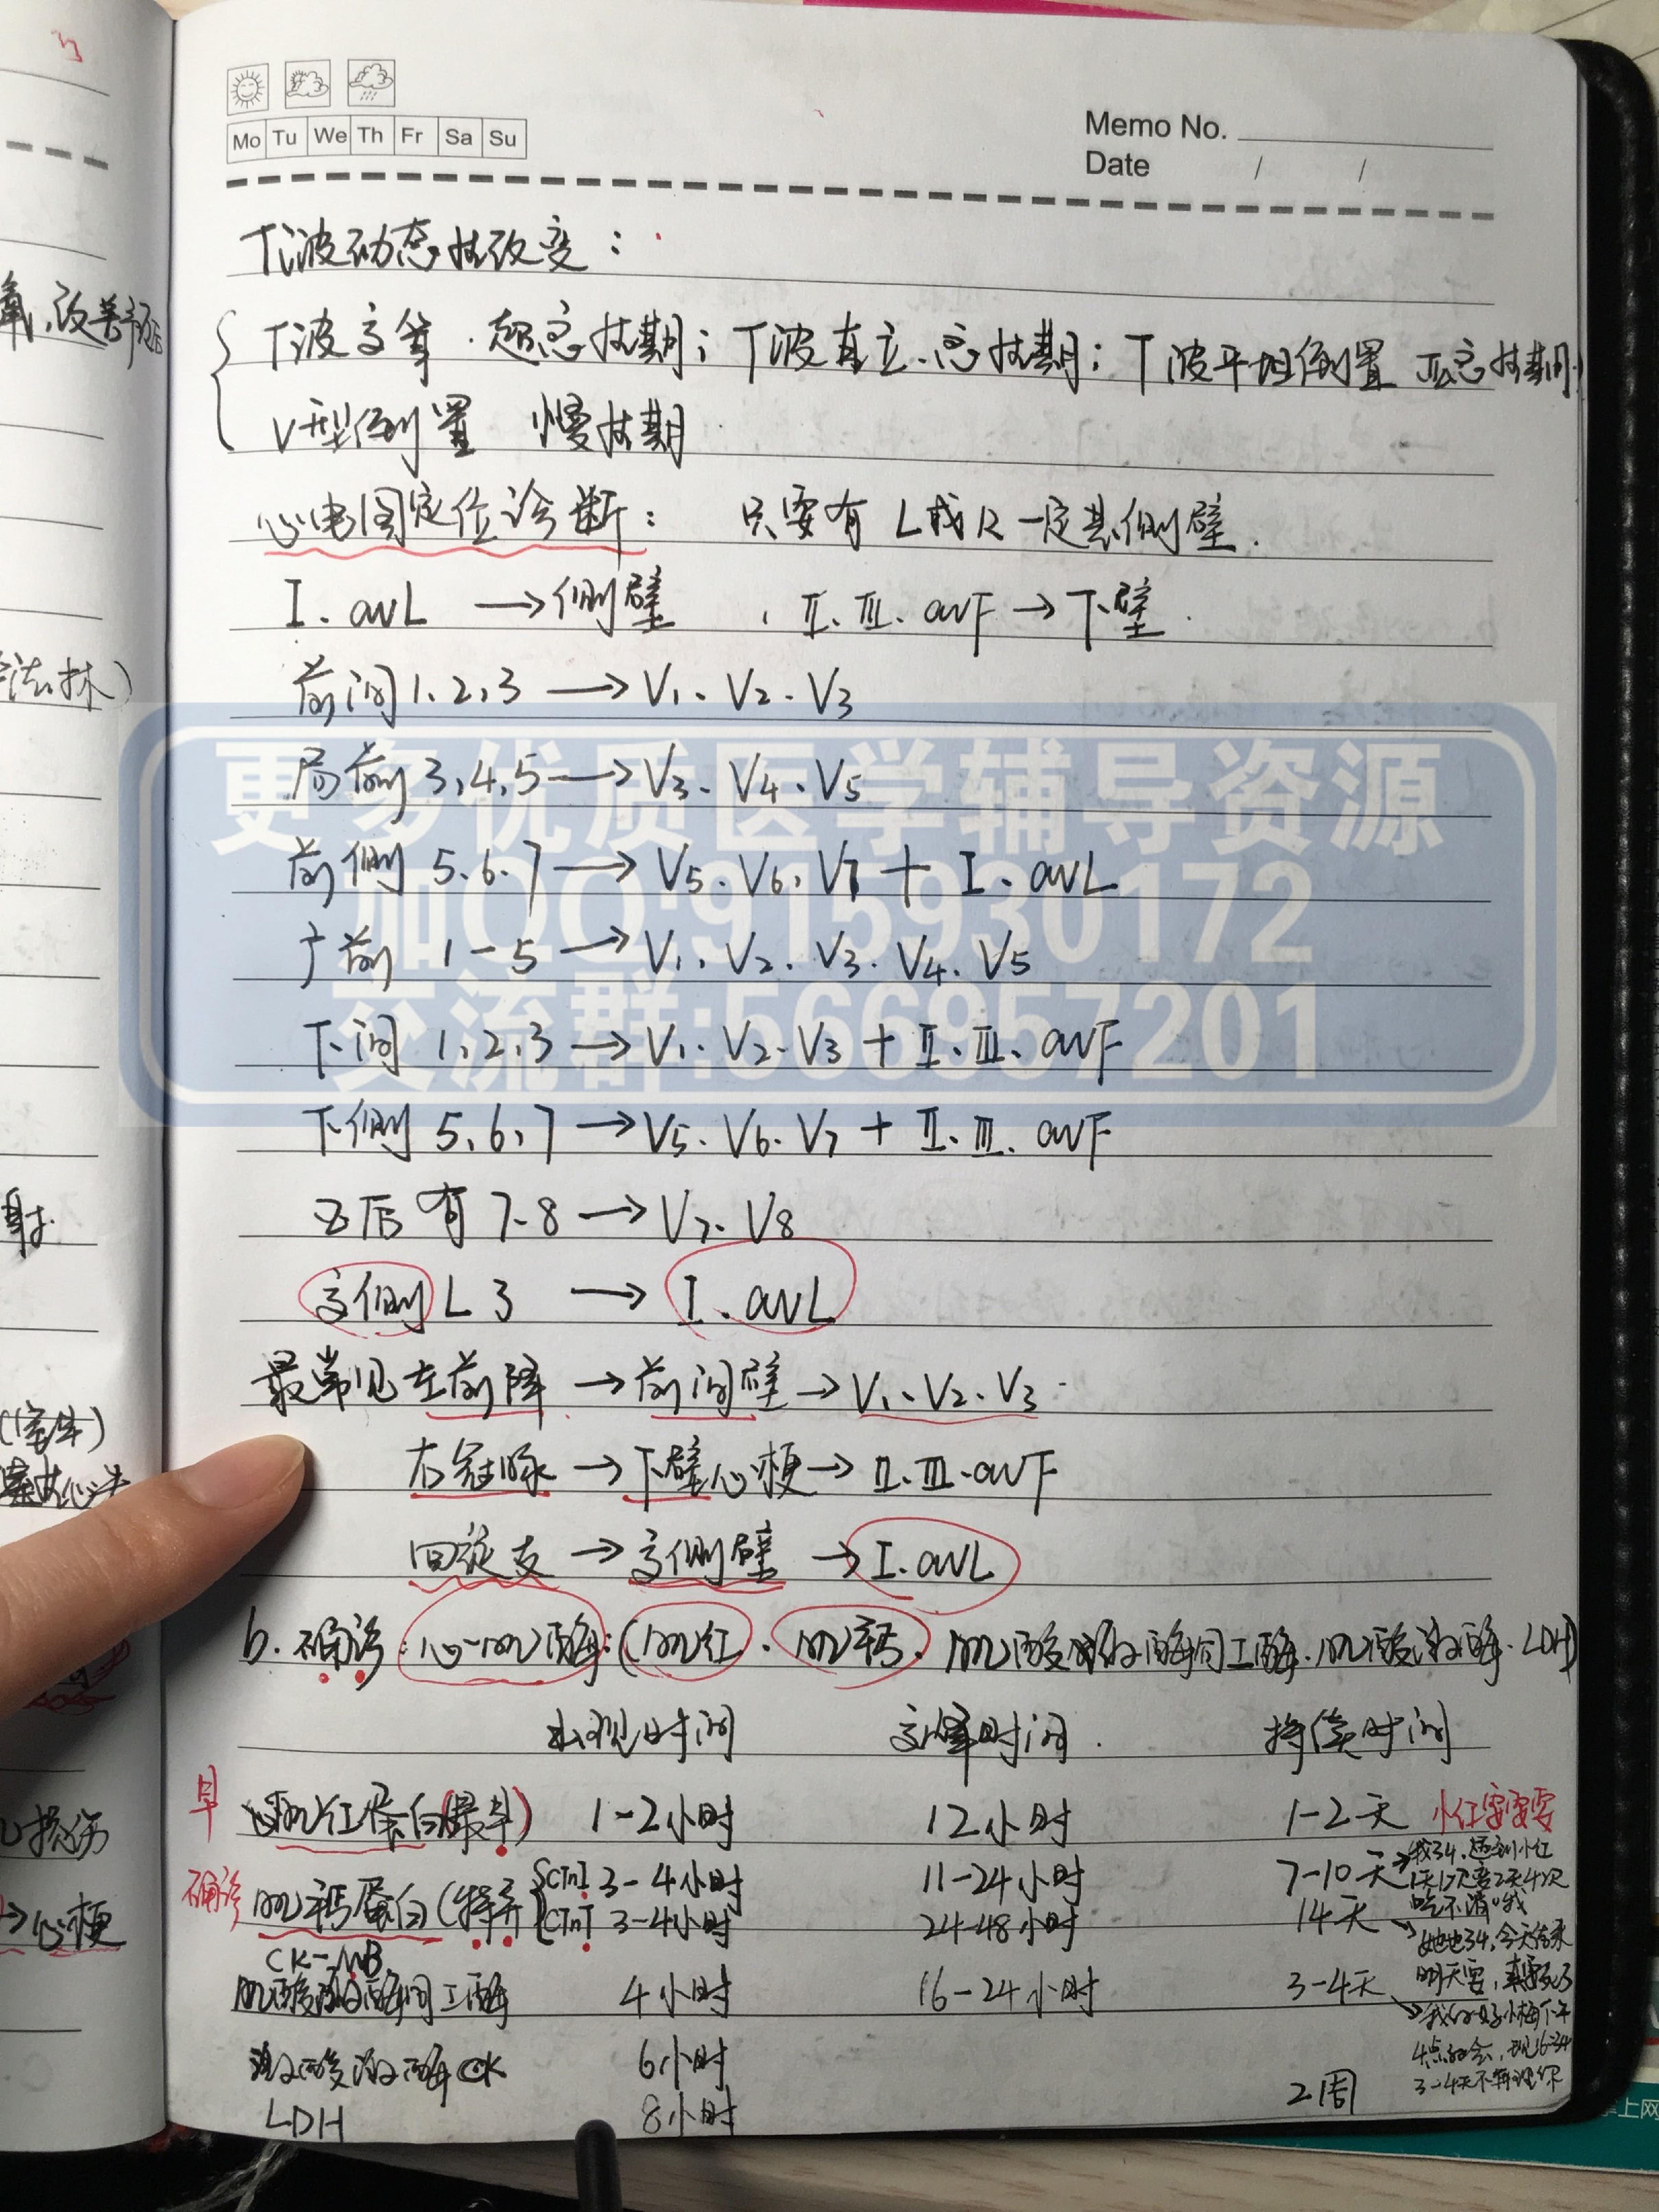 Mo Tu We Th Fr Sa Su
Memo No.
Date / /
T波动态性改变：
T波高耸.超急性期；T波直立.急性期；T波平坦倒置 亚急性期
V型倒置 慢性期
心电图定位诊断： 只要有L或R一定是侧壁.
I.avL →侧壁 , II.III.avF→下壁.
前间1,2,3→V1、V2.V3
局前3,4,5→V3、V4、V5
前侧 5.6.7→V5.V6.V7+I、avL
广前 1-5→V1.V2.V3.V4.V5
下间 1,2,3→V1.V2.V3+II.III.avF
下侧 5,6,7→V5.V6.V7+II.III.avF
正后有7.8→V7.V8
高侧L 3→I.avL
更多优质医学辅导资源
加QQ:915930172
交流群:566957201
最常见左前降→前间壁→V1.V2.V3.
右冠脉→下壁心梗→II.III.avF
回旋支→高侧壁→I.avL
b.确诊:心肌酶:(肌红.肌钙.肌酸激酶同工酶.肌酸激酶.LDH)
出现时间 高峰时间. 持续时间
早 肌红蛋白(最早) 1-2小时 12小时 1-2天 小红要要要
确诊 肌钙蛋白(特异) cTnI 3-4小时 11-24小时 7-10天
cTnT 3-4小时 24-48小时 14天
CK-MB
肌酸激酶同工酶 4小时 16-24小时 3-4天
激酸激酶CK 6小时
LDH 8小时 2周
我34,遇到小红
1天12次要2天4次
吃不消哦
她也34,今天
明天要,
4点
3-4天不再理你
氧,改善预后
法.术)
射.
损伤
→心梗
掌上网